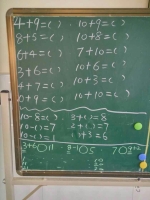 4+9=( ) 10+9=( )
8+5=( ) 10+8=( )
6+4=( ) 7+10=( )
3+6=( ) 10+6=( )
4+7=( ) 10+3=( )
0+9=( ) 10+10=( )
10-8=( ) 3+( )=8
10-( )=7 2+( )=7
10-( )=1 1+( )=6
3+6○11 8-1○5 7○